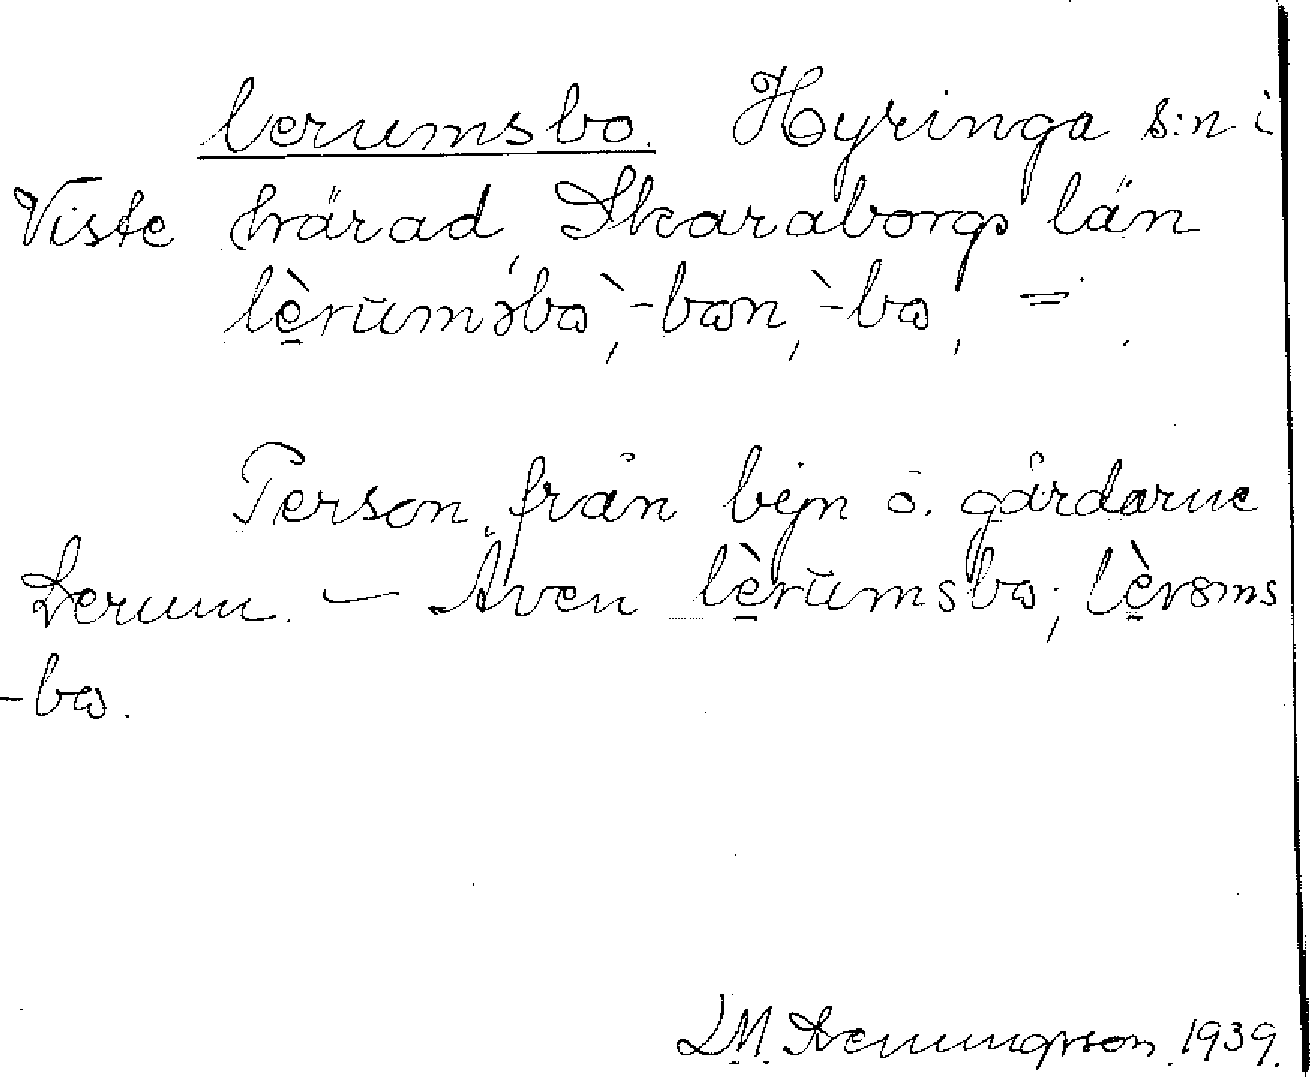 lerumsbo. Hyringa s:n i
Viste härad, Skaraborgs län
lèrumsbo, -bon, -bo, =.
Person från byn o. gårdarne
Lerum. — Även lèrumsbo; lèroms
-bo.
1939.